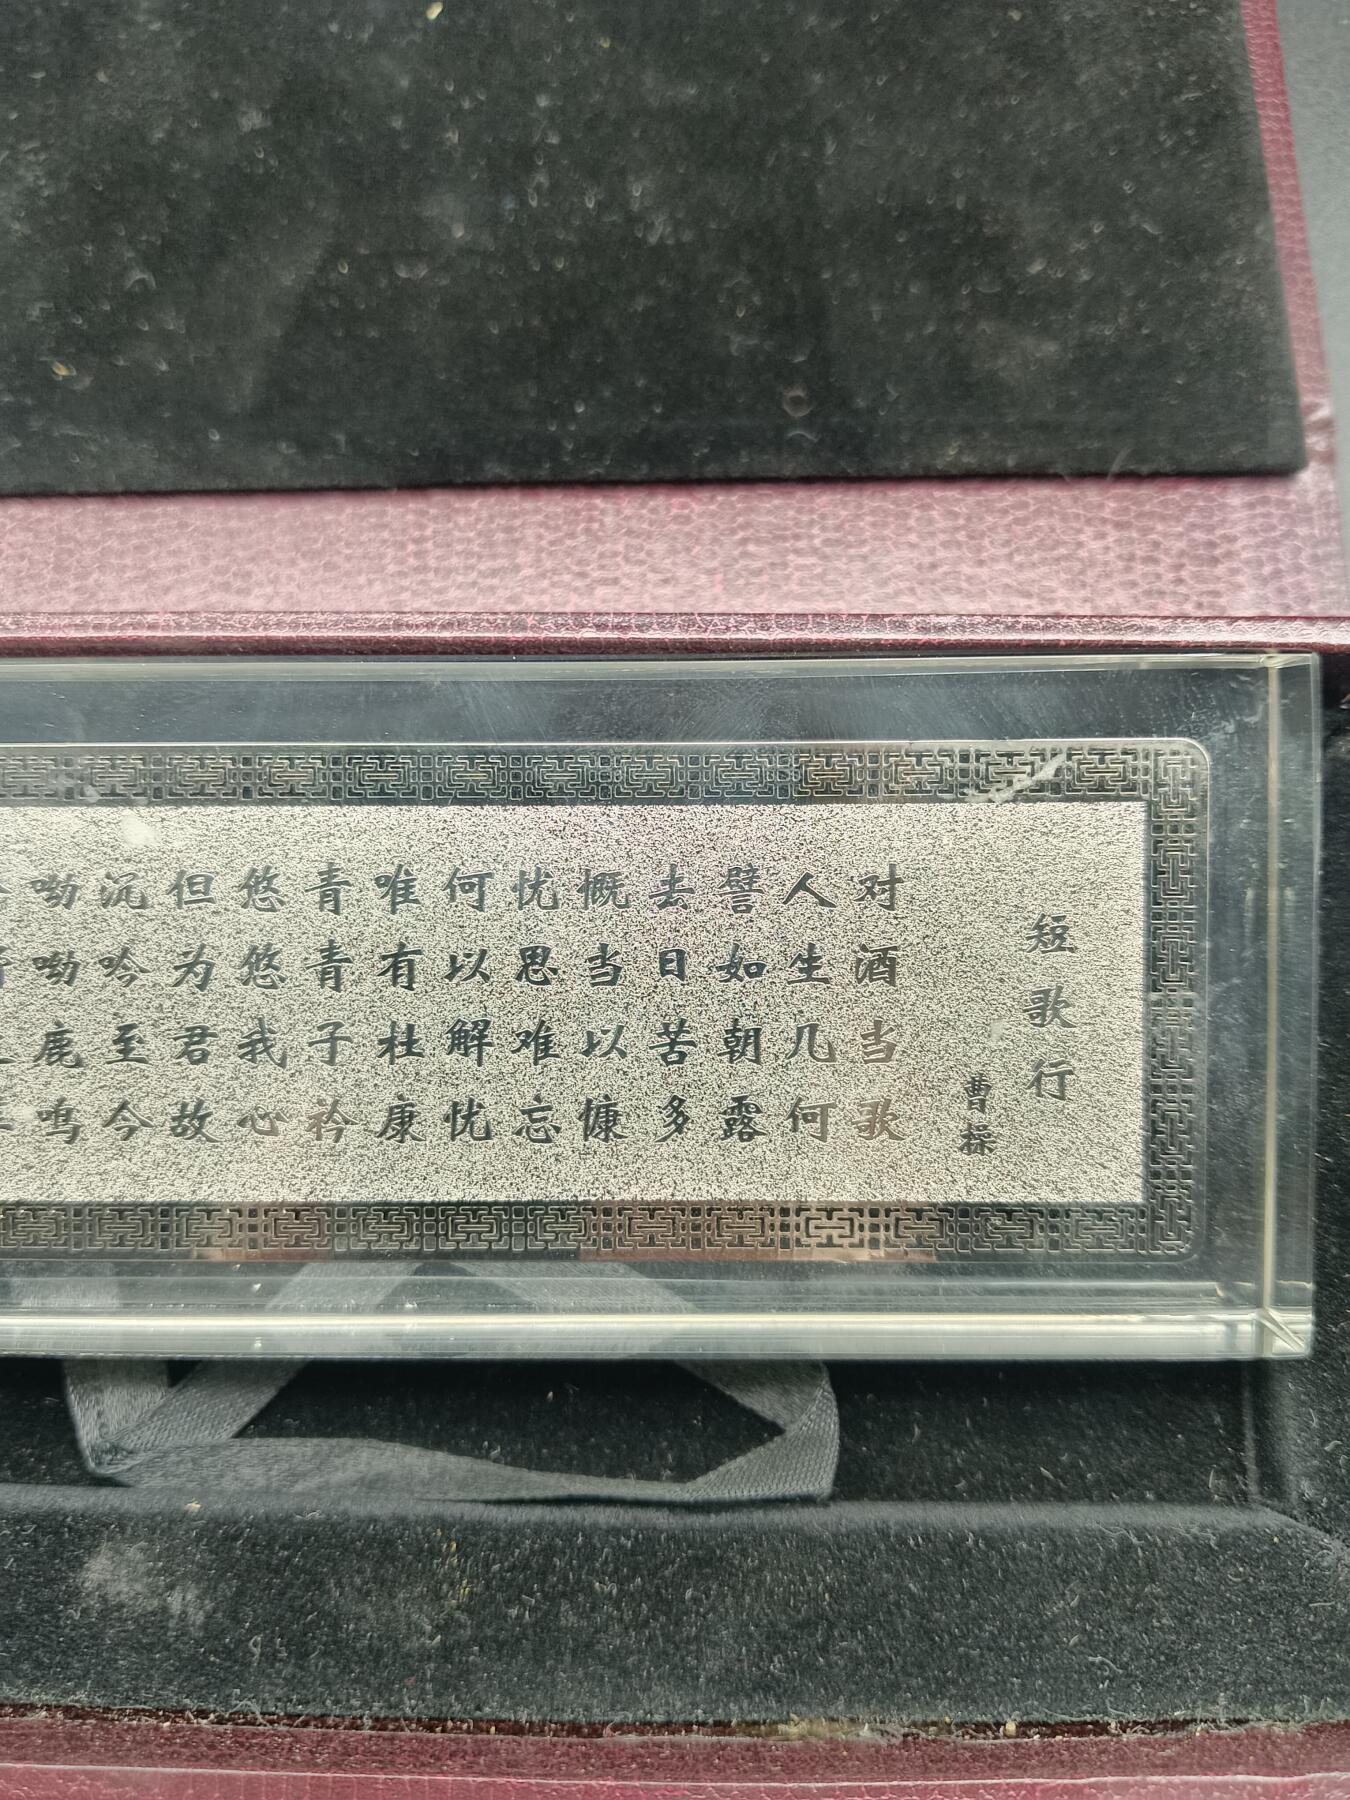 短歌行
曹操
对酒当歌
人生几何
譬如朝露
去日苦多
慨当以慷
忧思难忘
何以解忧
唯有杜康
青青子衿
悠悠我心
但为君故
沉吟至今
呦呦鹿鸣